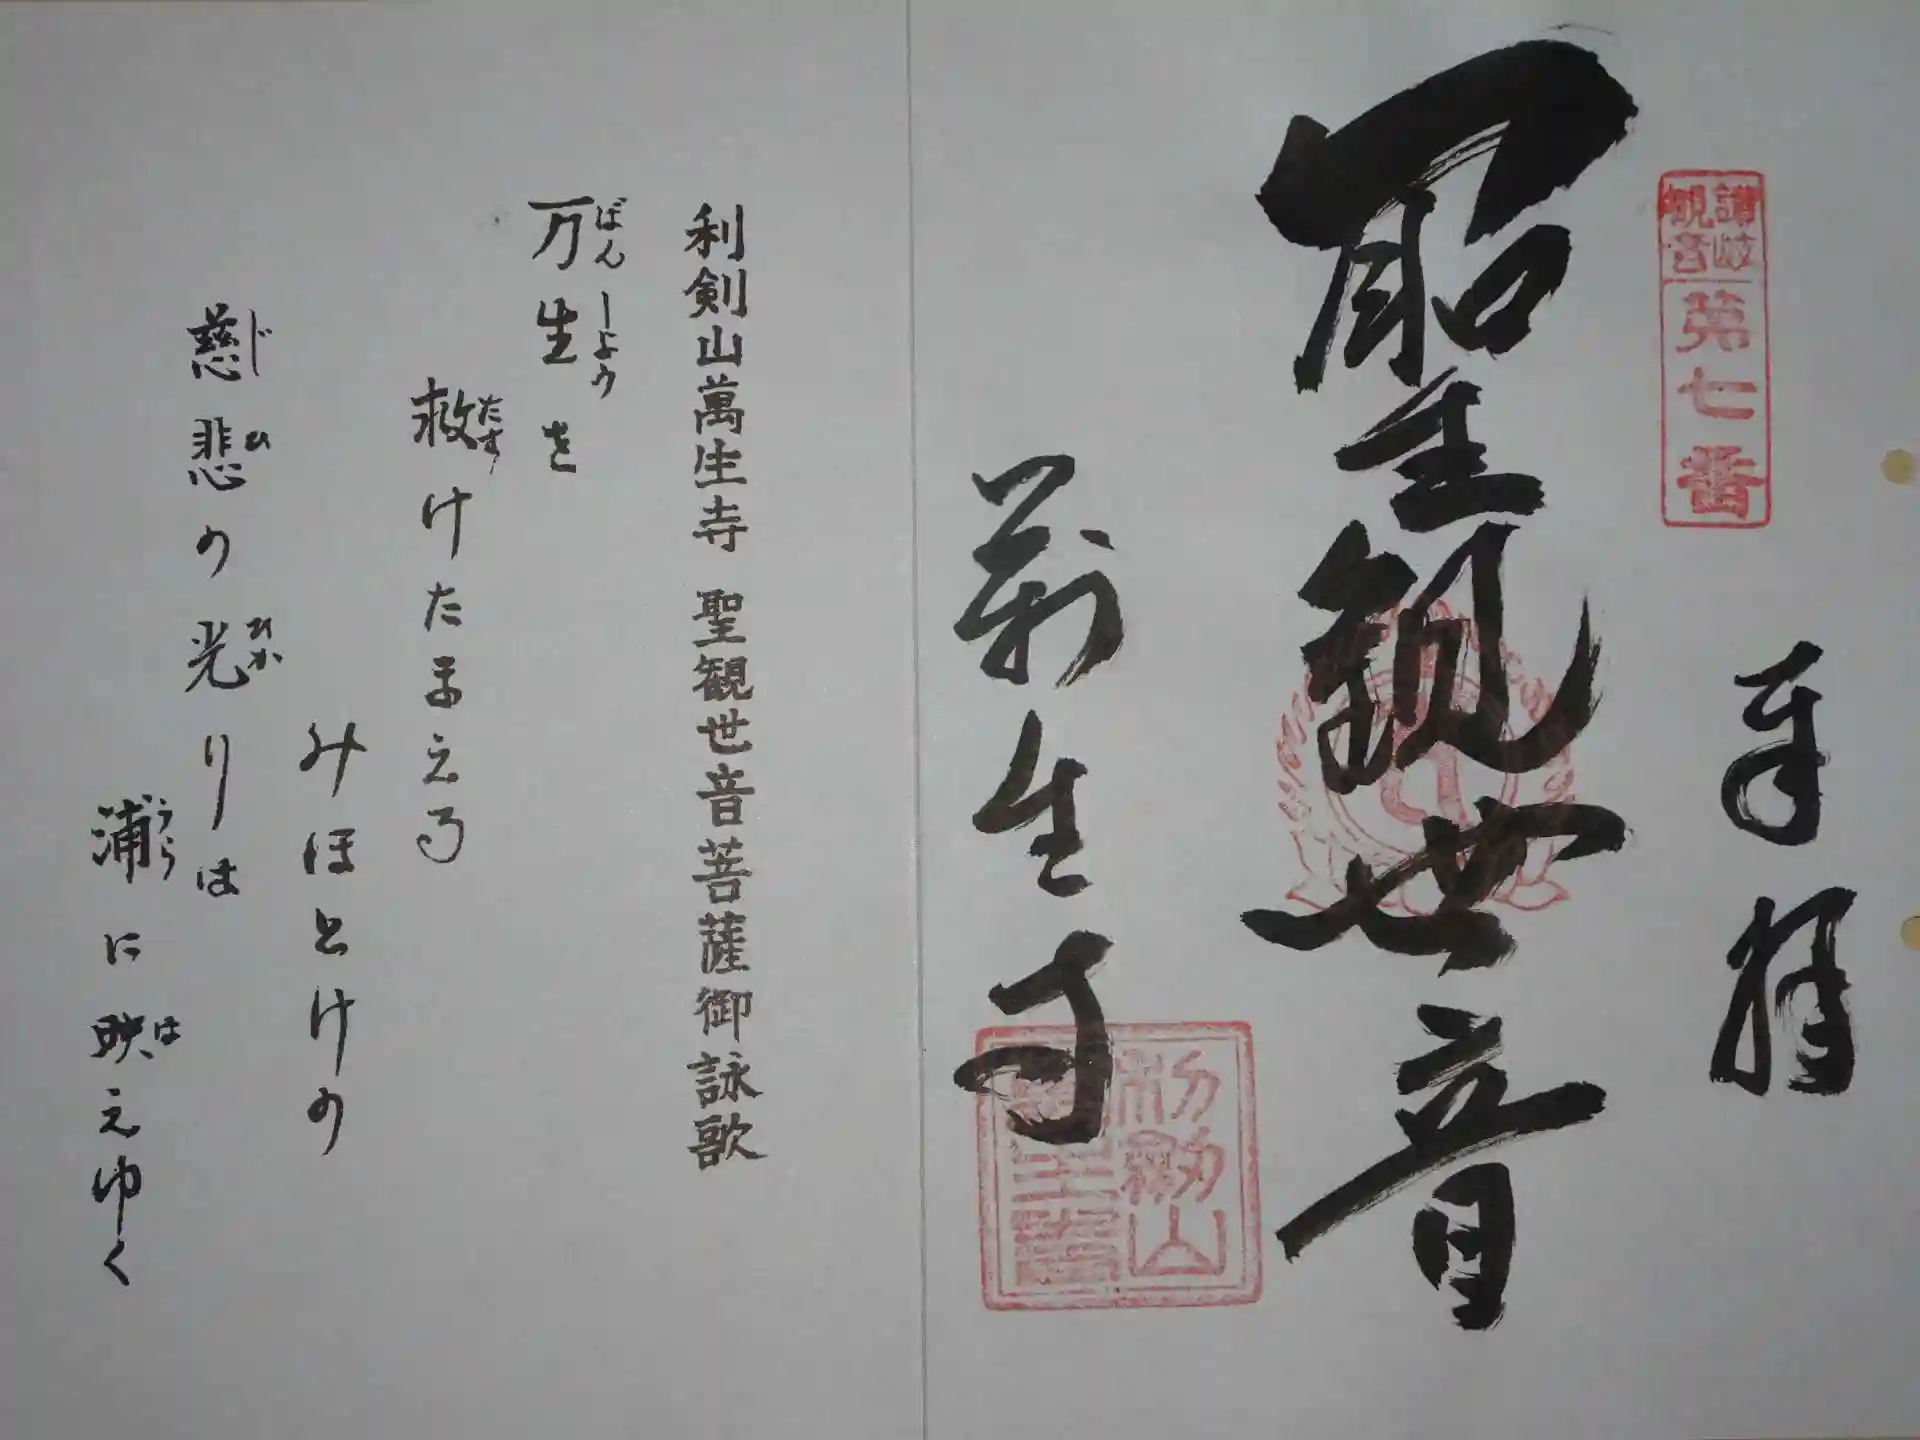 奉拝
讃岐観音
第七番
聖観世音
萬生寺
利剣山
利剣山萬生寺 聖観世音菩薩御詠歌
万生を
ばんしょう
救けたまえる
たす
みほとけの
慈悲の光りは
じひ ひか
浦に映えゆく
うら は